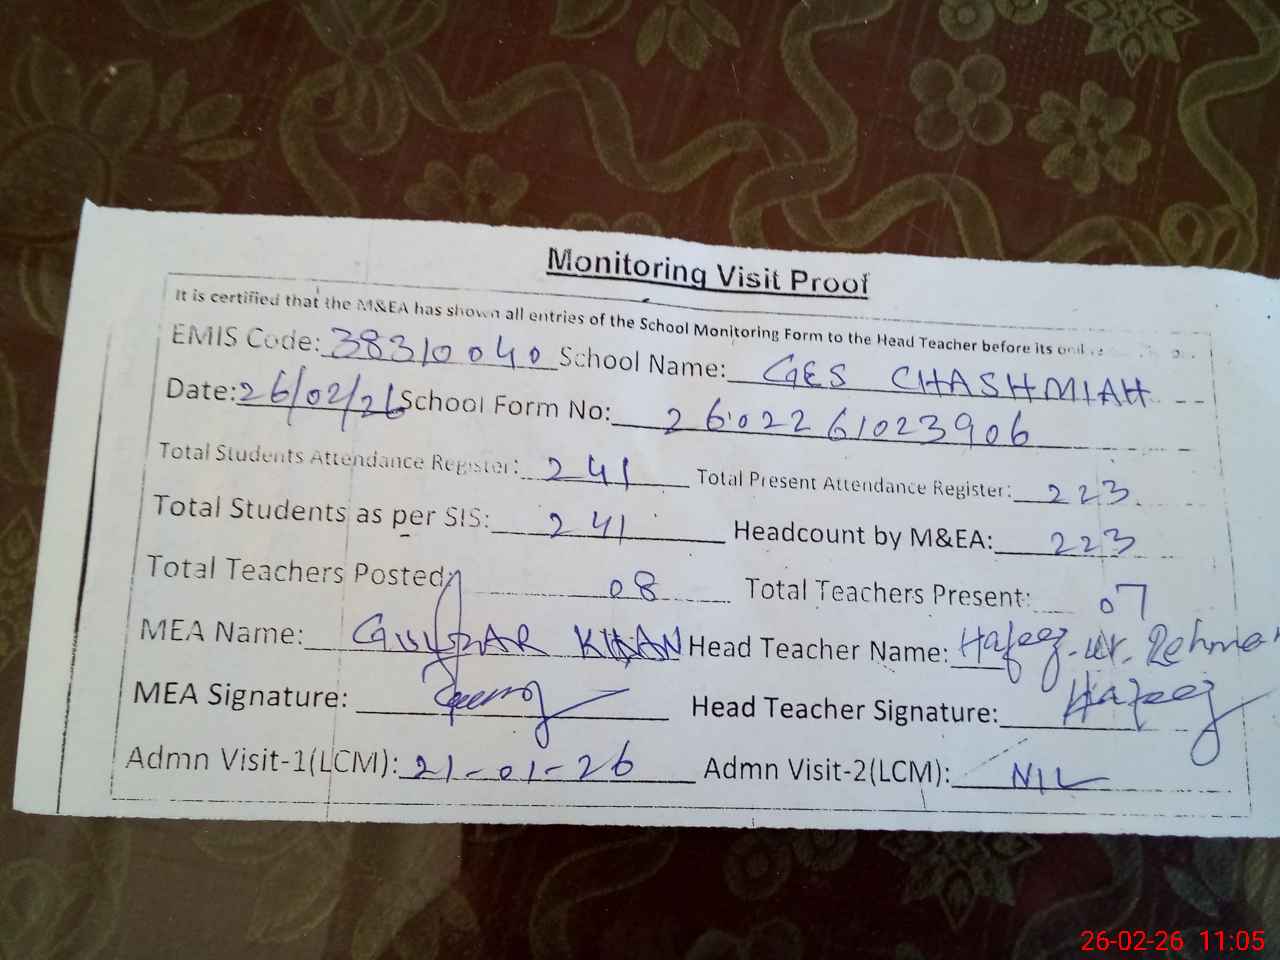 Monitoring Visit Proof
It is certified that the M&EA has shown all entries of the School Monitoring Form to the Head Teacher before its
EMIS Code: 38310040 School Name: GES CHASHMIAH
Date: 26/02/26 School Form No: 2602261023906
Total Students Attendance Register: 241 Total Present Attendance Register: 223
Total Students as per SIS: 241 Headcount by M&EA: 223
Total Teachers Posted: 08 Total Teachers Present: 07
MEA Name: KHAN Head Teacher Name: Hafeez-ur-Rehman
MEA Signature: Head Teacher Signature: Hafeez
Admn Visit-1(LCM): 21-01-26 Admn Visit-2(LCM): NIL
26-02-26 11:05